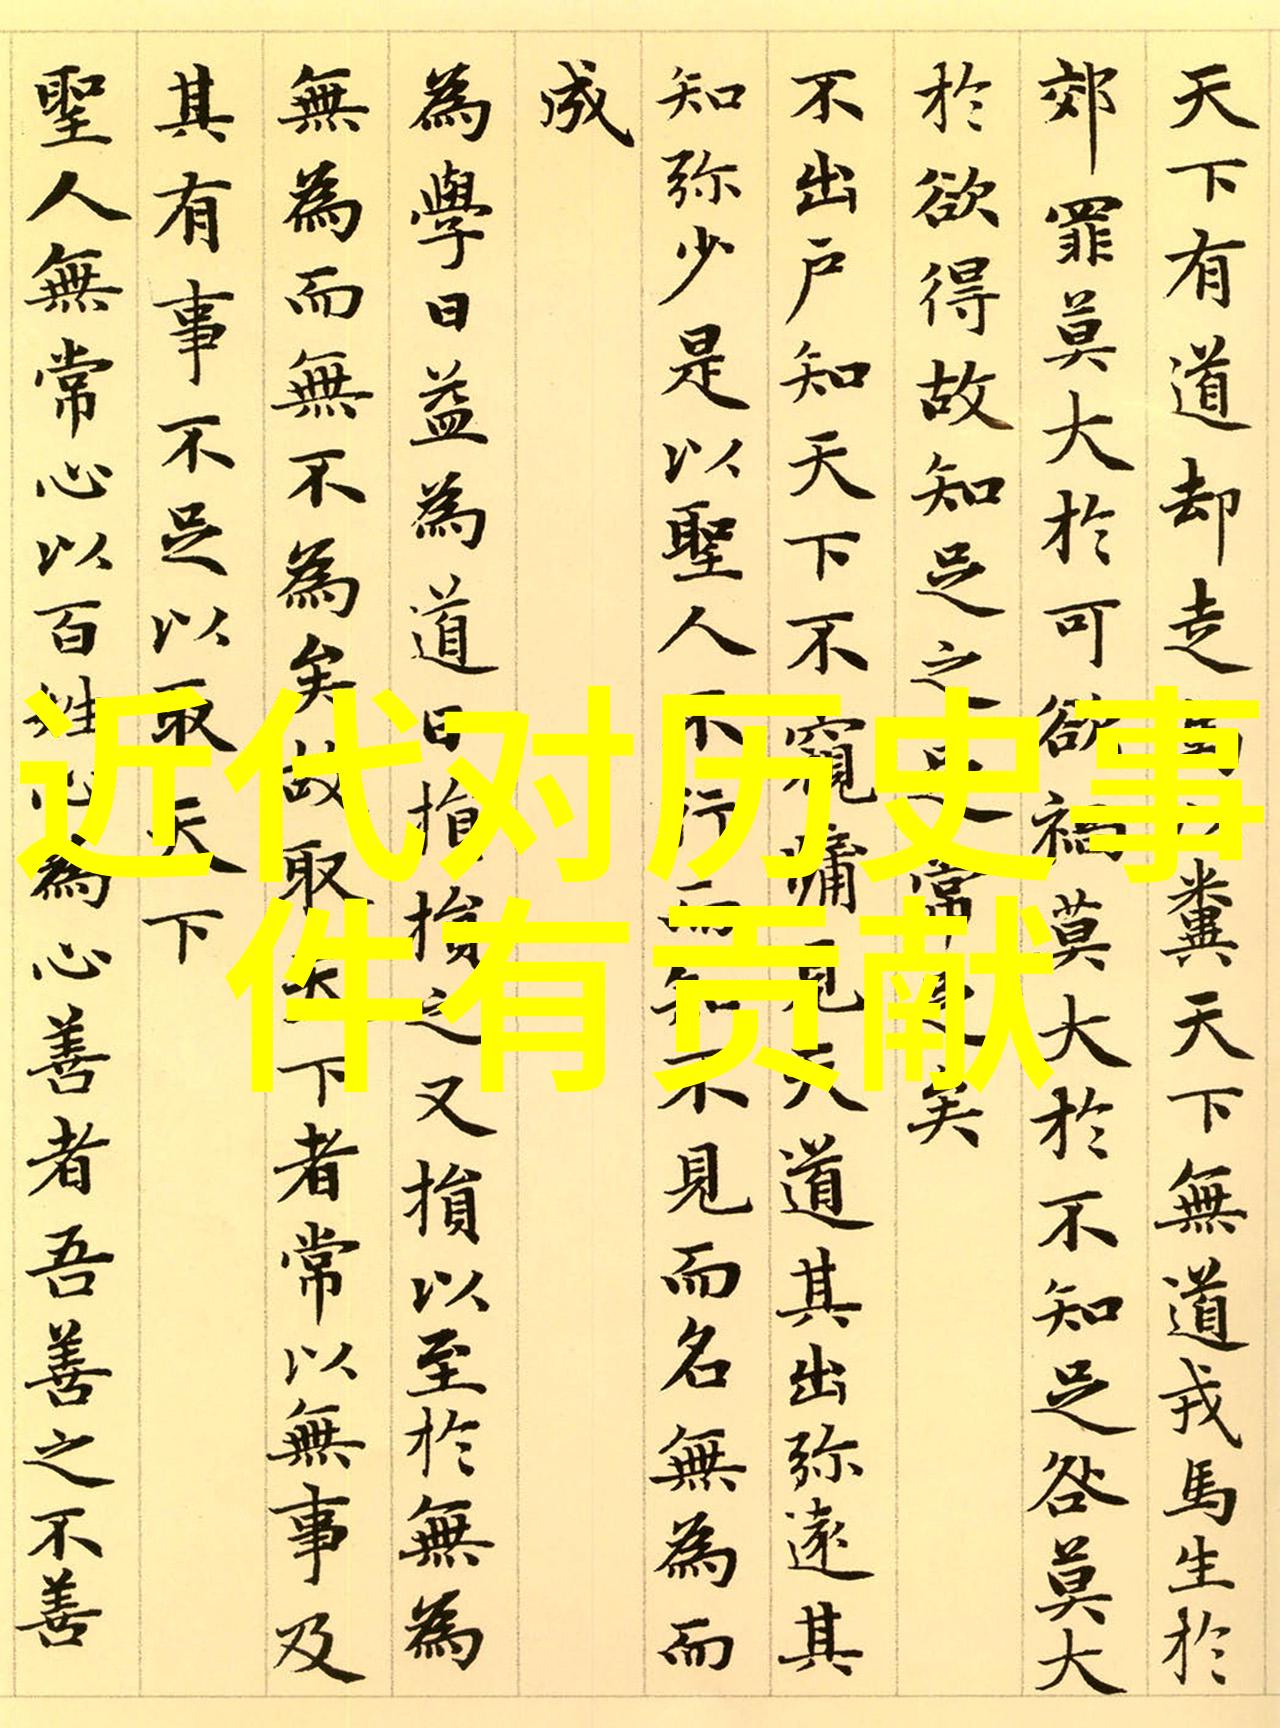 天下有道却走馬以糞天下無道戎馬生於
郊罪莫大於可欲禍莫大於不知足咎莫大
於欲得故知足之足常足矣
不出戶知天下不窺牖見天道其出弥遠其
知弥少是以聖人不行而知不見而名無為而
成
為學日益為道日損損之又損以至於無為
無為而無不為矣故取天下者常以無事及
其有事不足以取天下
聖人無常心以百姓心為心善者吾善之不善
近代对历史事
件有贡献